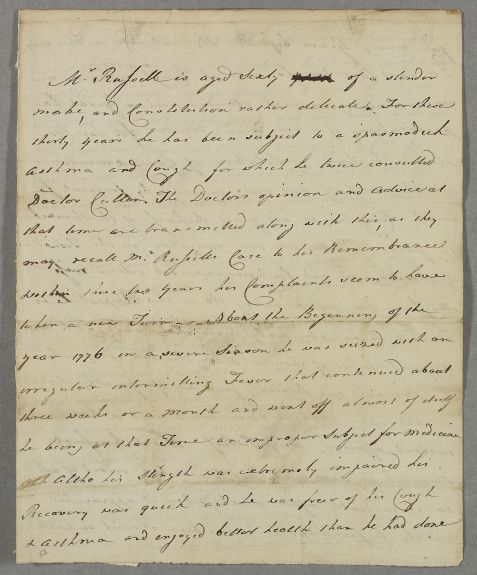 Mr Russell is aged Sixty of a slender
make, and Constitution rather delicate. For these
thirty years he has been subject to a spasmodick
asthma and Cough for which he twice consulted
Doctor Cullen. The Doctors opinion and advice at
that time are transmitted along with this, as they
may recall Mr Russells Case to his Remembrance
within these two years his Complaints seem to have
taken a new Turn. About the Beginning of the
year 1776 in a severe Season he was seized with an
irregular intermitting Fever that continued about
three weeks or a month and went off almost of itself
he being at that Time an improper Subject for medicine
Altho his Strength was extremely impaired his
Recovery was quick and he was freer of his Cough
& asthma and enjoyed better health than he had done